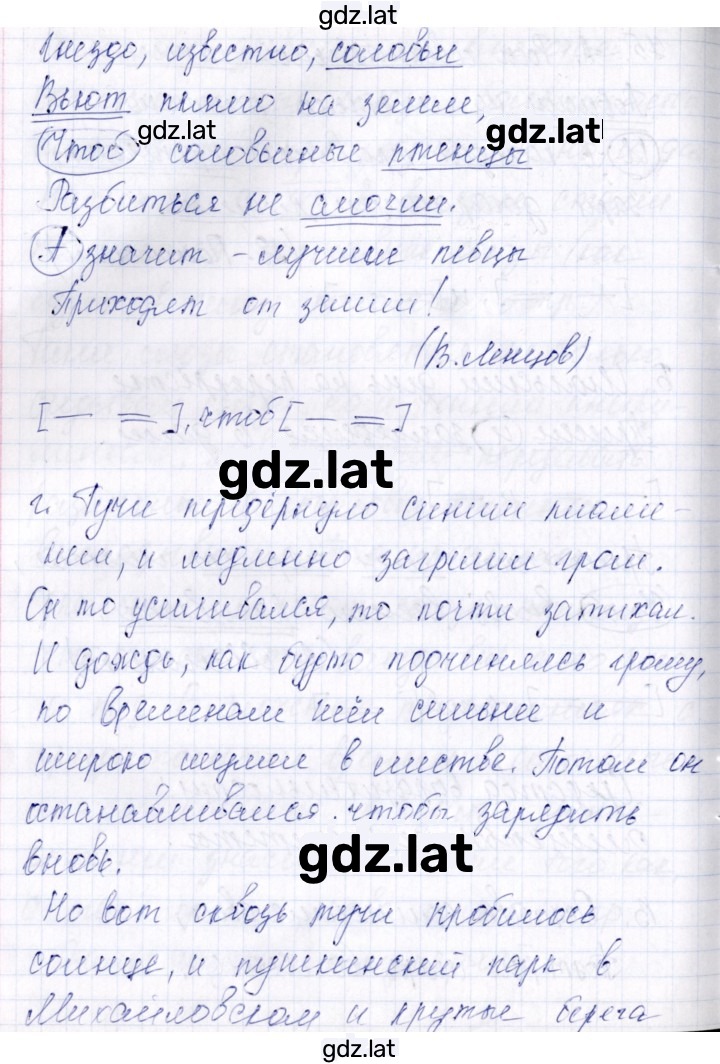 gdz.lat
Гнездо, известно, соловьи
Вьют прямо на земли,
gdz.lat
gdz.lat
Чтоб соловьиные птенцы
Разбиться не смогли.
А значит - лучшие певцы
Приходят от земли!
(В.Ленцов)
[— =], чтоб [— =]
gdz.lat
г. Тучи передёрнуло синим пламе-
нем, и медленно загремел гром.
Он то усиливался, то почти затихал.
И дождь, как будто подчиняясь грому,
по временам шёл сильнее и
широко шумел в листве. Потом он
останавливался. чтобы зарядить
вновь.
gdz.lat
Но вот сквозь тучи пробилось
солнце, и пушкинский парк в
Михайловском и крутые берега
gdz.lat